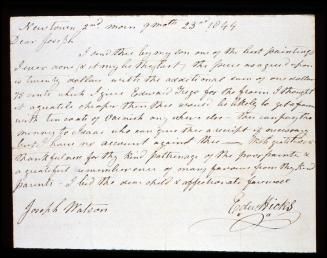 Newtown 2nd morn 9 moth 23rd 1844
Dear Joseph
I send thee by my son one of the best paintings
I ever done (& it may be the last). the price as agreed upon
is twenty dollars with the additional sum of one dollar
75 cents which I give Edward Trego for the frame. I thought
it a quatle cheaper than thee would be likely to get a frame
with ten coats of varnish any where else — thee can pay the
money to Isaac who can give thee a receipt if necessary
but I have no account against thee — With gratitude &
thankfulness for thy kind patronage of the poor painter &
a grateful remembrance of many favours from thy kind
parents — I bid thee dear child an affectionate farewell
Edw. Hicks
Joseph Watson